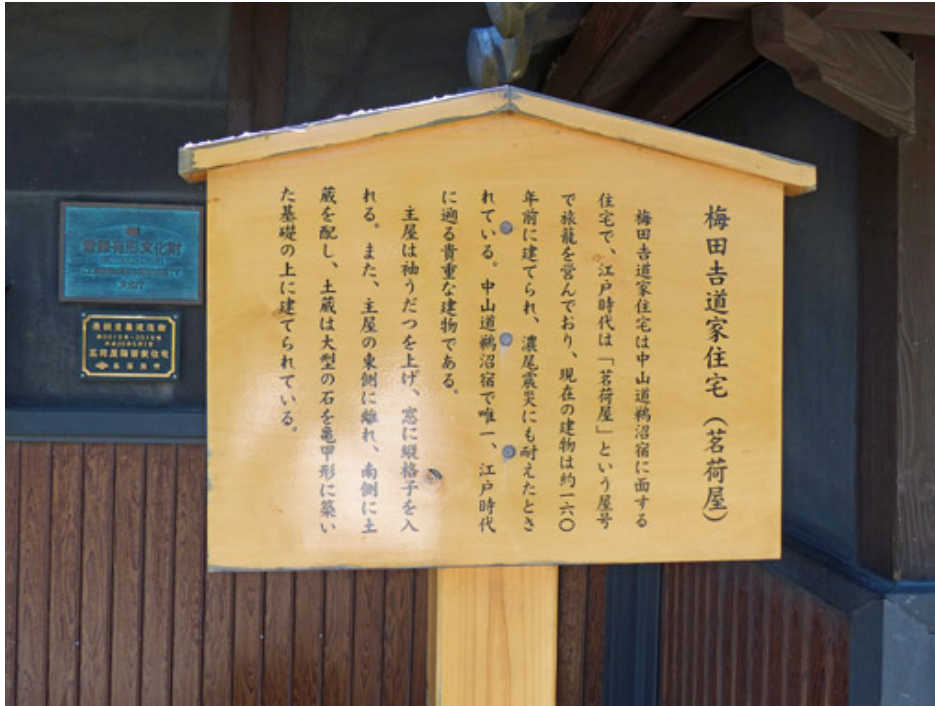 梅田吉道家住宅(茗荷屋)
梅田吉道家住宅は中山道鵜沼宿に面する
住宅で、江戸時代は「茗荷屋」という屋号
で旅籠を営んでおり、現在の建物は約一六〇
年前に建てられ、濃尾震災にも耐えたとさ
れている。中山道鵜沼宿で唯一、江戸時代
に遡る貴重な建物である。
主屋は袖うだつを上げ、窓に縦格子を入
れる。また、主屋の東側に離れ、南側に土
蔵を配し、土蔵は大型の石を亀甲形に築い
た基礎の上に建てられている。
登録有形文化財
文化庁